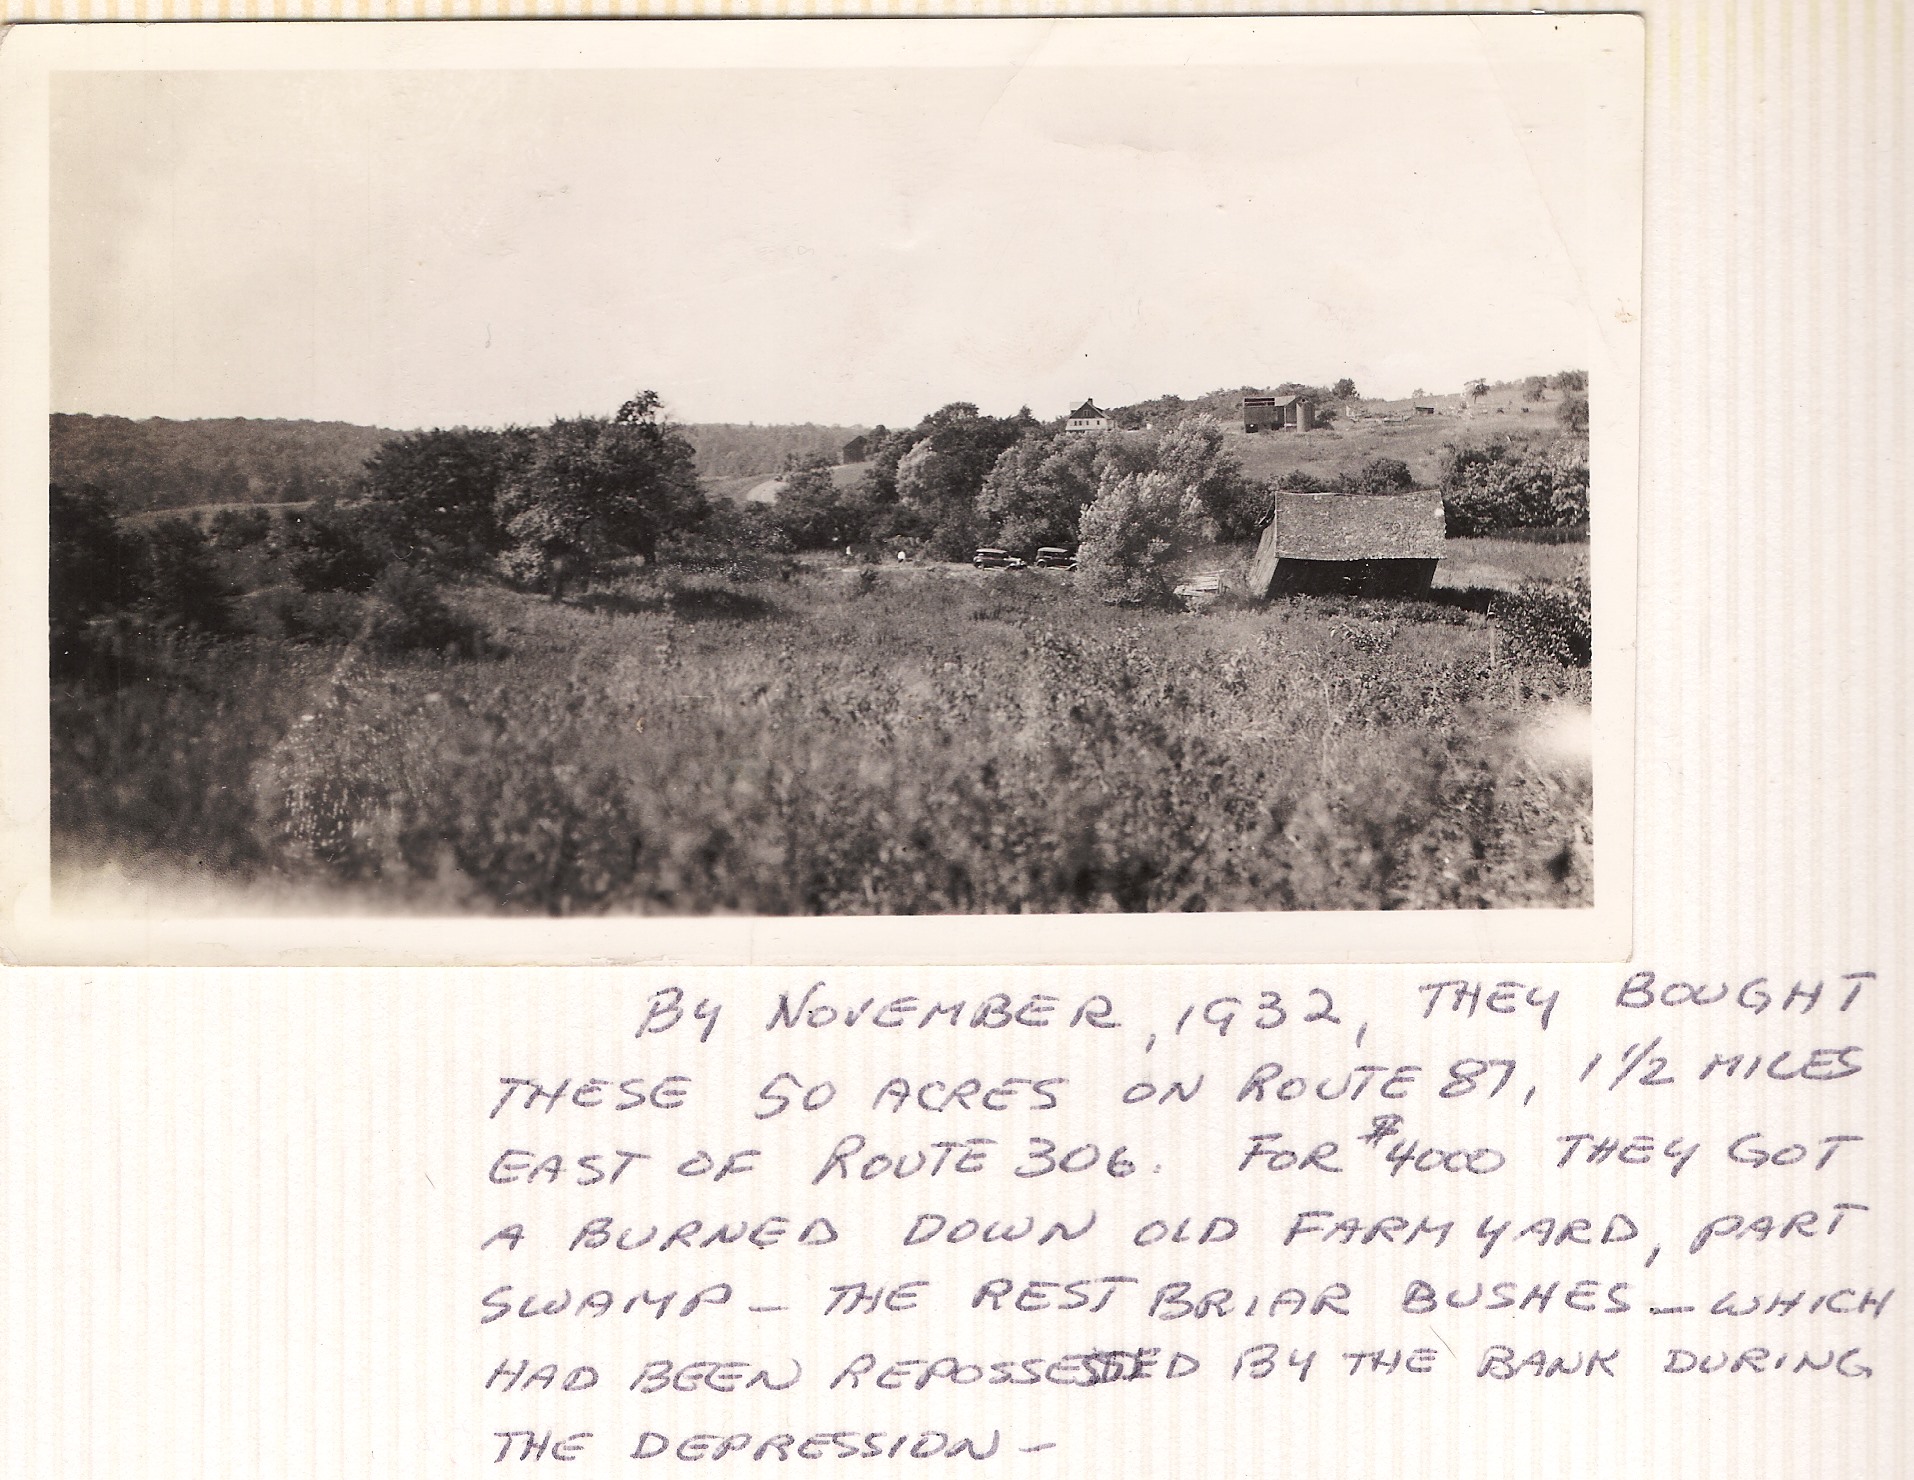 BY NOVEMBER, 1932, THEY BOUGHT
THESE 50 ACRES ON ROUTE 87, 1 1/2 MILES
EAST OF ROUTE 306. FOR $4000 THEY GOT
A BURNED DOWN OLD FARM YARD, PART
SWAMP - THE REST BRIAR BUSHES - WHICH
HAD BEEN REPOSSESSED BY THE BANK DURING
THE DEPRESSION -